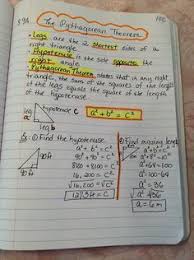 The Pythagorean Theorem
• Legs are the 2 shortest sides of a
right triangle.
• Hypotenuse is the side opposite the
right angle.
• Pythagorean Theorem states that in any right
triangle, the sum of the squares of the length
of the legs equals the square of the length
of the hypotenuse.
hypotenuse c
leg a
leg b
a² + b² = c²
Ex: ① Find the hypotenuse
90ft
90ft
a² + b² = c²
90² + 90² = c²
8100 + 8100 = c²
16,200 = c²
√16,200 = √c²
② Find missing length
a² + b² = c²
a² + 64 = 100
-64 -64
a² = 36
a = 6m